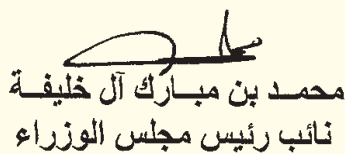 محمد بن مبارك آل خليفة
نائب رئيس مجلس الوزراء